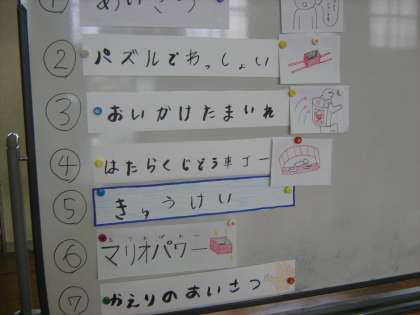 ①
② パズルでわっしょい
③ おいかけたまいれ
④ はたらくじどう車ゴー
⑤ きゅうけい
⑥ マリオパワー
⑦ かえりのあいさつ